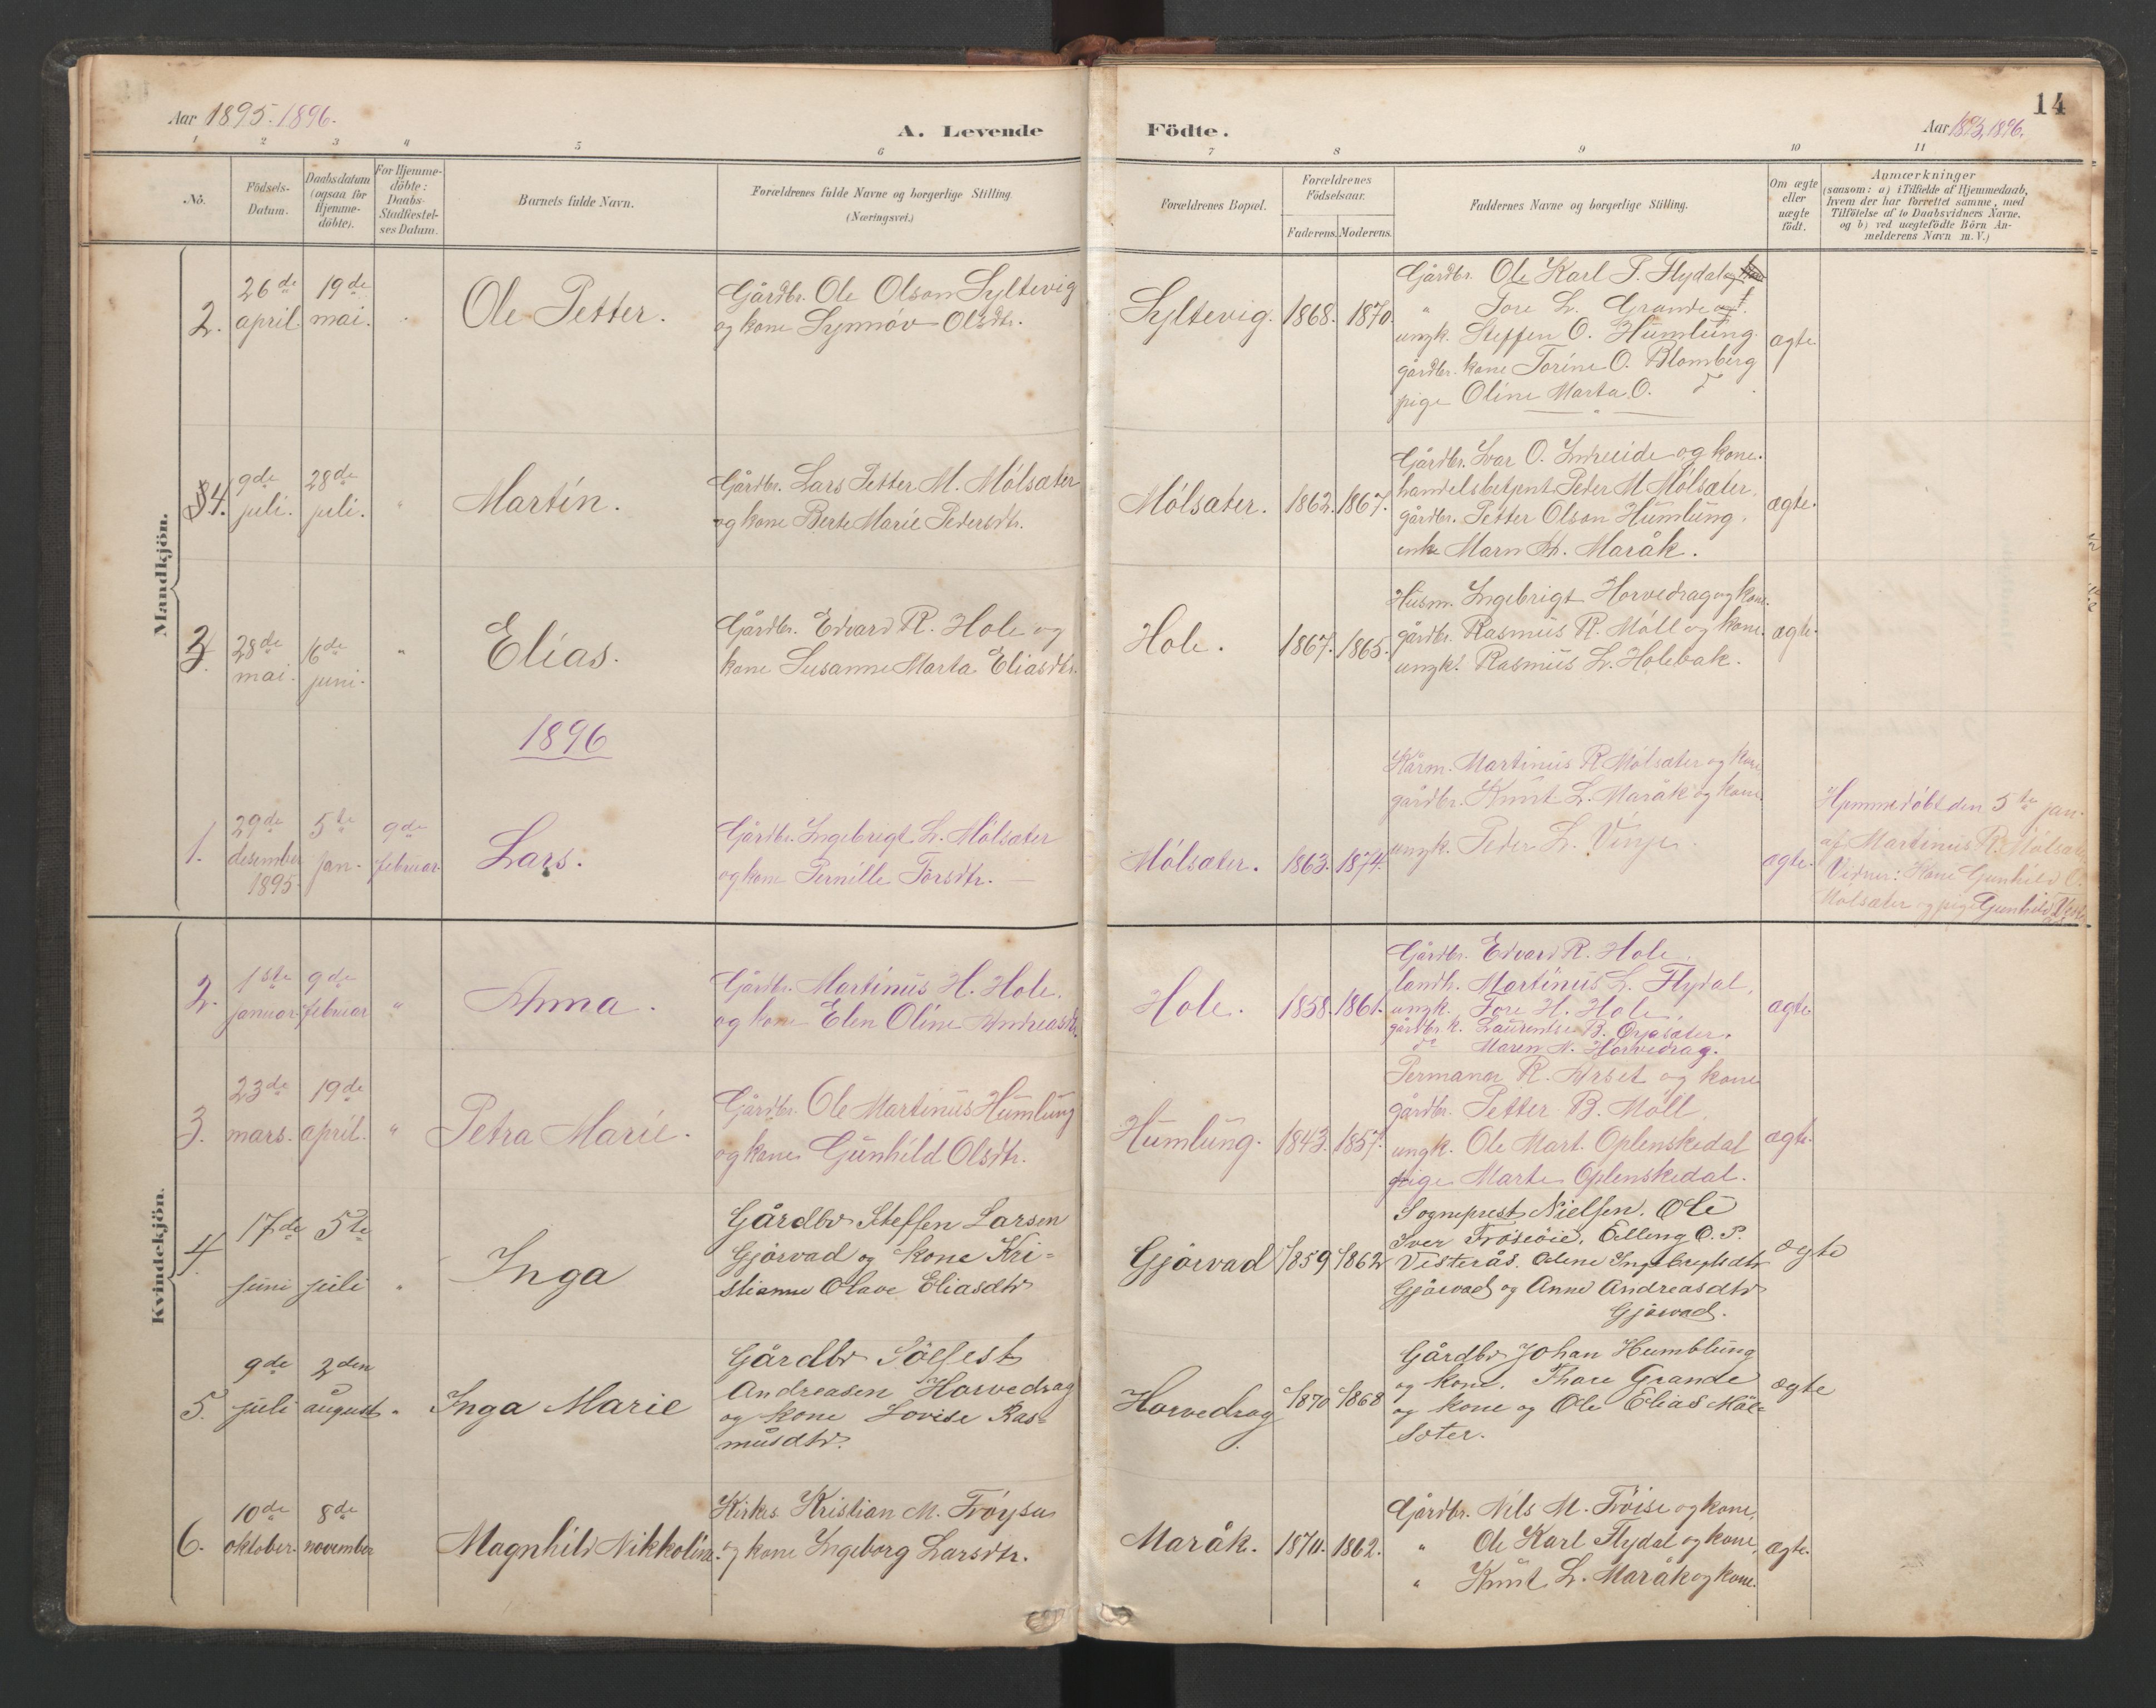 Aar 1895. 1896.
A. Levende
Födte.
Aar 1895, 1896.
14
1 2 3 4 5 6 7 8 9 10 11
No.
Födsels-
Datum.
Daabsdatum
(ogsaa for
Hjemme-
döbte).
For Hjemme-
döbte:
Daabs-
Stadfæstel-
ses Datum.
Barnets fulde Navn.
Forældrenes fulde Navne og borgerlige Stilling.
(Næringsvei.)
Forældrenes Bopæl.
Forældrenes
Födselsaar.
Faderens. Moderens.
Faddernes Navne og borgerlige Stilling.
Om ægte
eller
uægte
födt.
Anmærkninger
(saasom: a) i Tilfælde af Hjemmedaab,
hvem der har forrettet samme, med
Tilföielse af to Daabsvidners Navne,
og b) ved uægtefödte Börn An-
melderens Navn m. V.)
Mandkjön.
2.
26de
april.
19de
mai.
Ole Petter.
Gårdbr. Ole Olson Syltevig
og kone Synnøv Olsdtr.
Syltevig. 1868. 1870.
Gårdbr. Ole Karl P. Flydal
" Tore L. Grande
ungk. Steffen O. Humlung.
gårdbr. kone Torine O. Blomberg
pige Oline Marta O. d
ægte
4.
9de
juli.
28de
juli.
"
Martin.
Gårdbr. Lars Petter M. Mölsæter
og kone Berte Marie Pedersdtr.
Mölsæter. 1862. 1867.
Gårdbr. Ivar O. Indreeide og kone.
handelsbetjent Peder M Mölsæter.
gårdbr. Petter Olson Humlung.
enke Marn M. Maråk.
ægte.
3.
28de
mai.
16de
juni.
"
Elias.
Gårdbr. Edvard R. Hole og
kone Susanne Marta Eliasdtr.
Hole. 1867. 1865.
Husm. Ingebrigt Horvedrag og kone.
gårdbr. Rasmus R. Möll og kone.
ungk. Rasmus L. Holebak.
ægte.
1896
1.
29de
desember
1895.
5te
jan.
9de
februar.
Lars.
Gårdbr. Ingebrigt L. Mölsæter
og kone Pernille Torsdtr.
Mölsæter. 1863. 1874.
Kårm. Martinus R Mölsæter og kone
gårdbr. Knut L. Maråk og kone
ungk. Peder L. Vinje.
ægte.
Hjemmedöbt den 5te jan.
af Martinus R. Mölsæter
Vidner: Kone Gunhild O.
Mölsæter og pige Gunhild
Kvindekjön.
2.
1ste
januar.
9de
februar
"
Anna.
Gårdbr. Martinus H. Hole.
og kone Elen Oline Andreasdtr.
Hole. 1858. 1861.
Gårdbr. Edvard R. Hole.
landh. Martinus L. Flydal,
ungk. Tore H. Hole,
gårdbr. k. Laurentse B. Orjasæter.
do Maren N. Horvedrag.
ægte
3.
23de
mars.
19de
april.
"
Petra Marie.
Gårdbr. Ole Martinus Humlung
og kone Gunhild Olsdtr.
Humlung. 1843. 1857.
Permanon R. Årset og kone
gårdbr. Petter B. Möll,
ungk. Ole Mart. Oplenskedal
pige Marte Oplenskedal.
ægte
4
17de
juni
5te
juli
"
Inga
Gårdbr Steffen Larsen
Gjörvad og kone Kri-
stianne Olave Eliasdtr
Gjörvad 1859 1862
Sogneprest Nielsen. Ole
Iver Fröseöie, Elling O. P.
Vesterås. Oline Ingebrigtsdtr
Gjörvad og Anne Andreasdtr
Gjörvad.
ægte
5.
9de
juli
2den
august
"
Inga Marie
Gårdbr Sölfest
Andreasen Horvedrag
og kone Lovise Ras-
musdtr.
Horvedrag 1870 1868
Gårdbr Johan Humblung
og kone. Thore Grande
og kone og Ole Elias Möl-
sæter.
ægte
6.
10de
oktober.
8de
november
Magnhild Nikkoline.
Kirkes. Kristian M. Fröysa
og kone Ingeborg Larsdtr.
Maråk. 1870. 1862.
Gårdbr. Nils M. Fröise og kone,
" Ole Karl Flydal og kone,
" Knut L. Maråk og kone.
ægte.